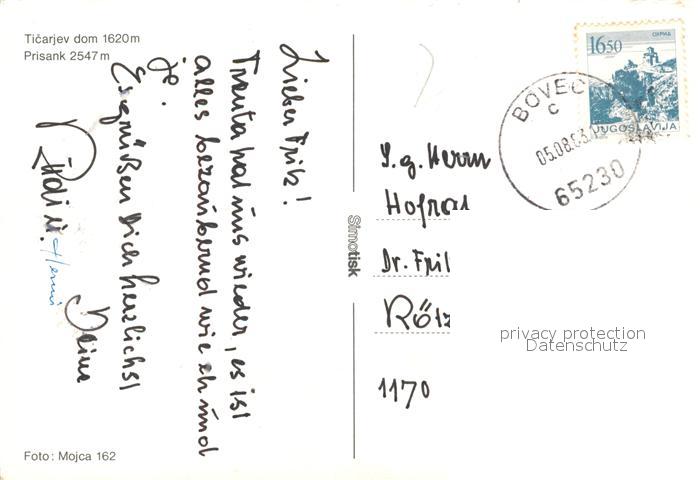 Tičarjev dom 1620m
Prisank 2547m
Lieber Fritz!
Trenta hat uns wieder, es ist
alles bezaubernd wie eh und
je.
Es grüßen Dich herzlichst
Deine
Didi u. Herni
Foto: Mojca 162
Simotisk
S.g. Herrn
Hofrat
Dr. Frit
Rötz
1170
OHRID
1650
JUGOSLAVIJA
BOVEC
C
05.08.83
65230
privacy protection
Datenschutz